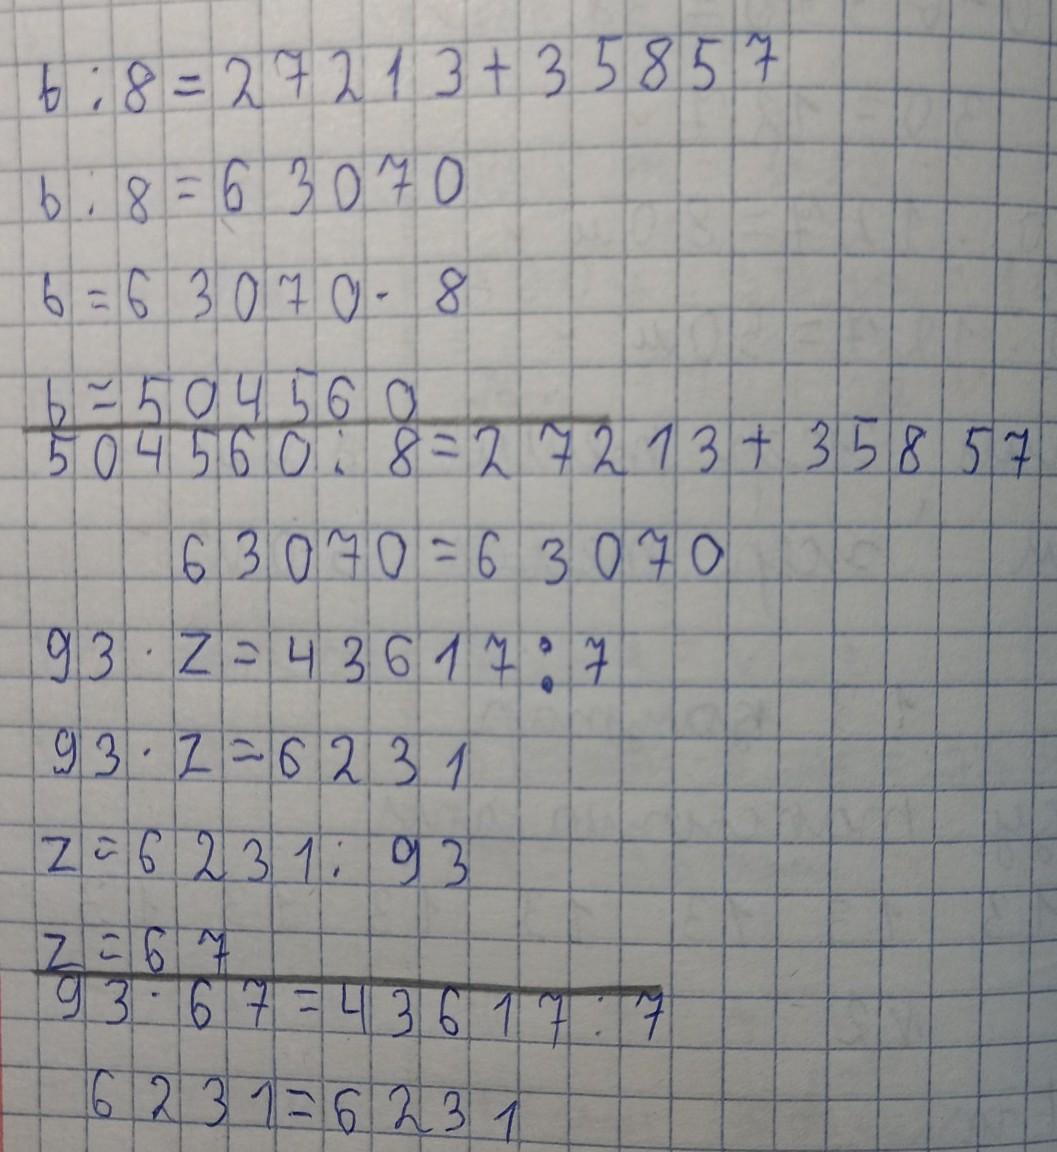 b : 8 = 27213 + 35857
b : 8 = 63070
b = 63070 · 8
b = 504560
504560 : 8 = 27213 + 35857
63070 = 63070
93 · z = 43617 : 7
93 · z = 6231
z = 6231 : 93
z = 67
93 · 67 = 43617 : 7
6231 = 6231